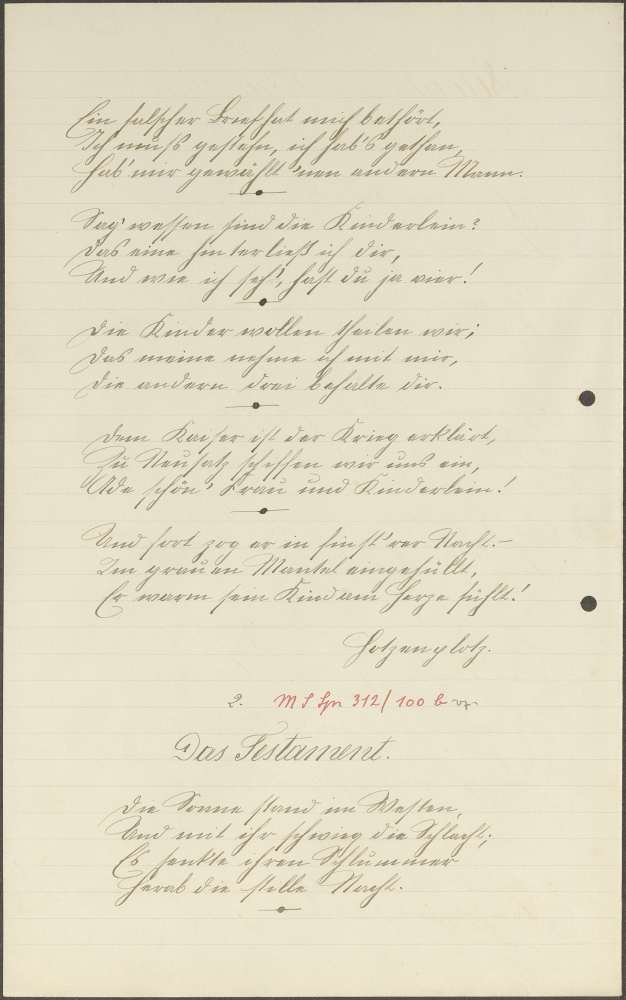 Ein falscher Brief hat mich bethört,
Ich muß gestehn, ich hab's gethan,
Hab' mir gewählt 'nen andern Mann.
Sag' wessen sind die Kinderlein?
Das eine hinterließ ich dir,
Und wie ich seh', hast du ja vier!
Die Kinder wollen theilen wir;
Das meine nehme ich mit mir,
Die andern drei behalte dir.
Dem Kaiser ist der Krieg erklärt,
Zu Neusatz schiffen wir uns ein,
Ade schön' Frau und Kinderlein!
Und fort zog er in finst'rer Nacht. –
Im grauen Mantel eingehüllt,
Er warm sein Kind am Herze fühlt!
Hotzenplotz.
2. MS Spr 312/100 b
Das Testament.
Die Sonne stand im Westen,
Und mit ihr schwieg die Schlacht;
Es senkte ihren Schlummer
Herab die stille Nacht.